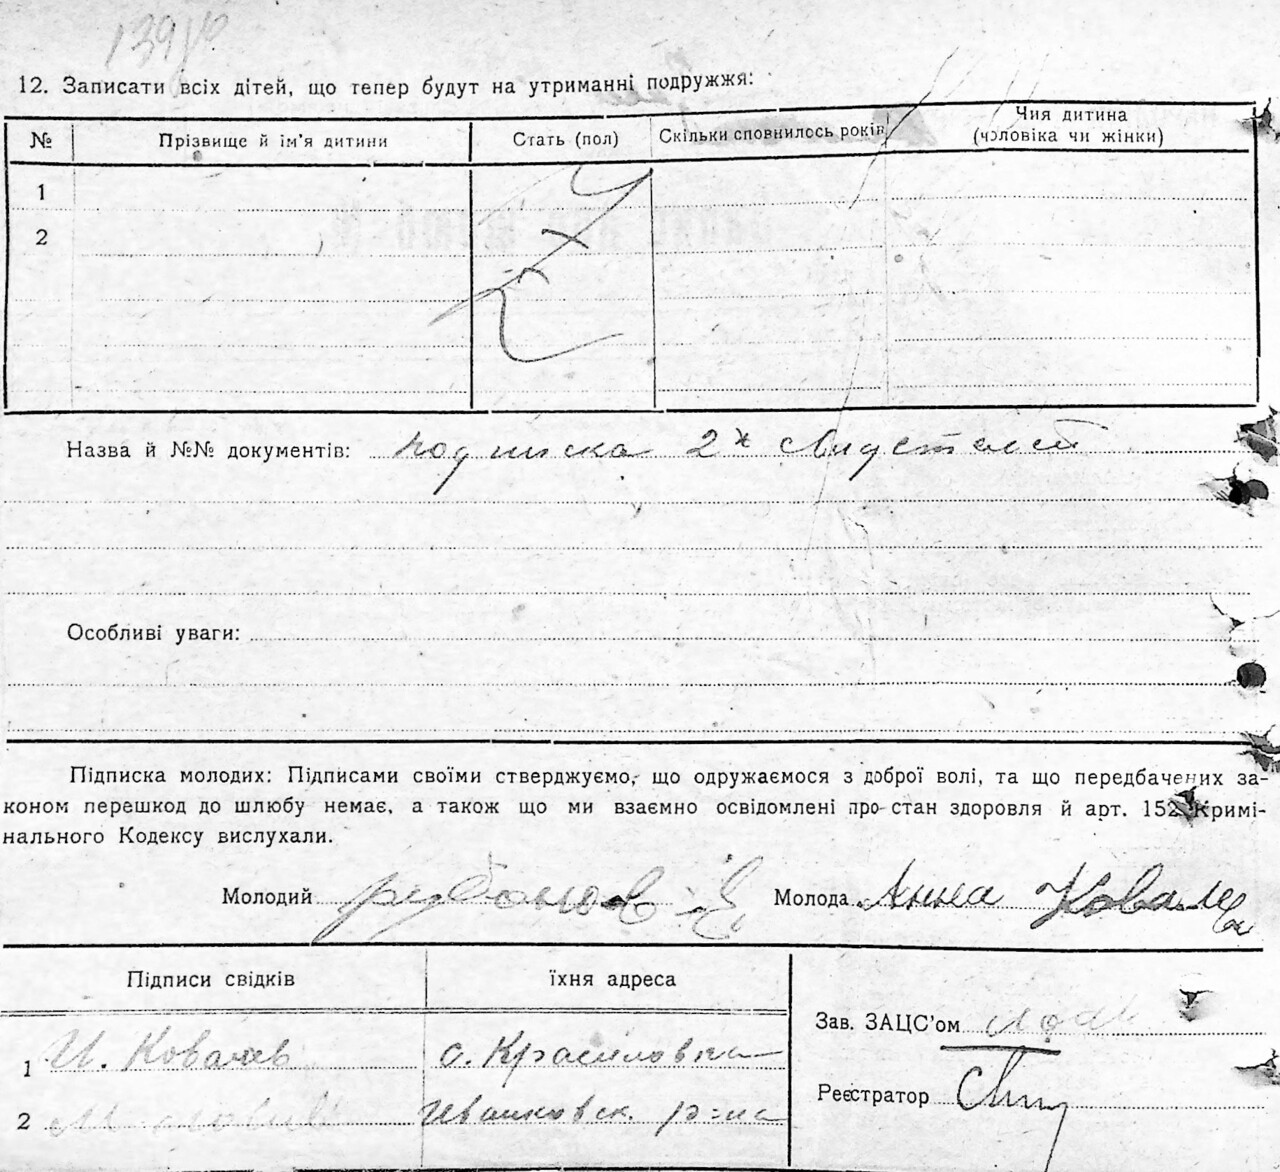 12. Записати всіх дітей, що тепер будут на утриманні подружжя:
№ Прізвище й ім'я дитини Стать (пол) Скільки сповнилось років Чия дитина (чоловіка чи жінки)
1
2
Назва й №№ документів: подписка 2х
Особливі уваги:
Підписка молодих: Підписами своїми стверджуємо, що одружаємося з доброї волі, та що передбачених за-
коном перешкод до шлюбу немає, а також що ми взаємно освідомлені про стан здоровля й арт. 152 Кримі-
нального Кодексу вислухали.
Молодий Молода Анна
Підписи свідків їхня адреса
Зав. ЗАЦС'ом
1 с. Красиловка
Реєстратор
2 Иванковск. р-на